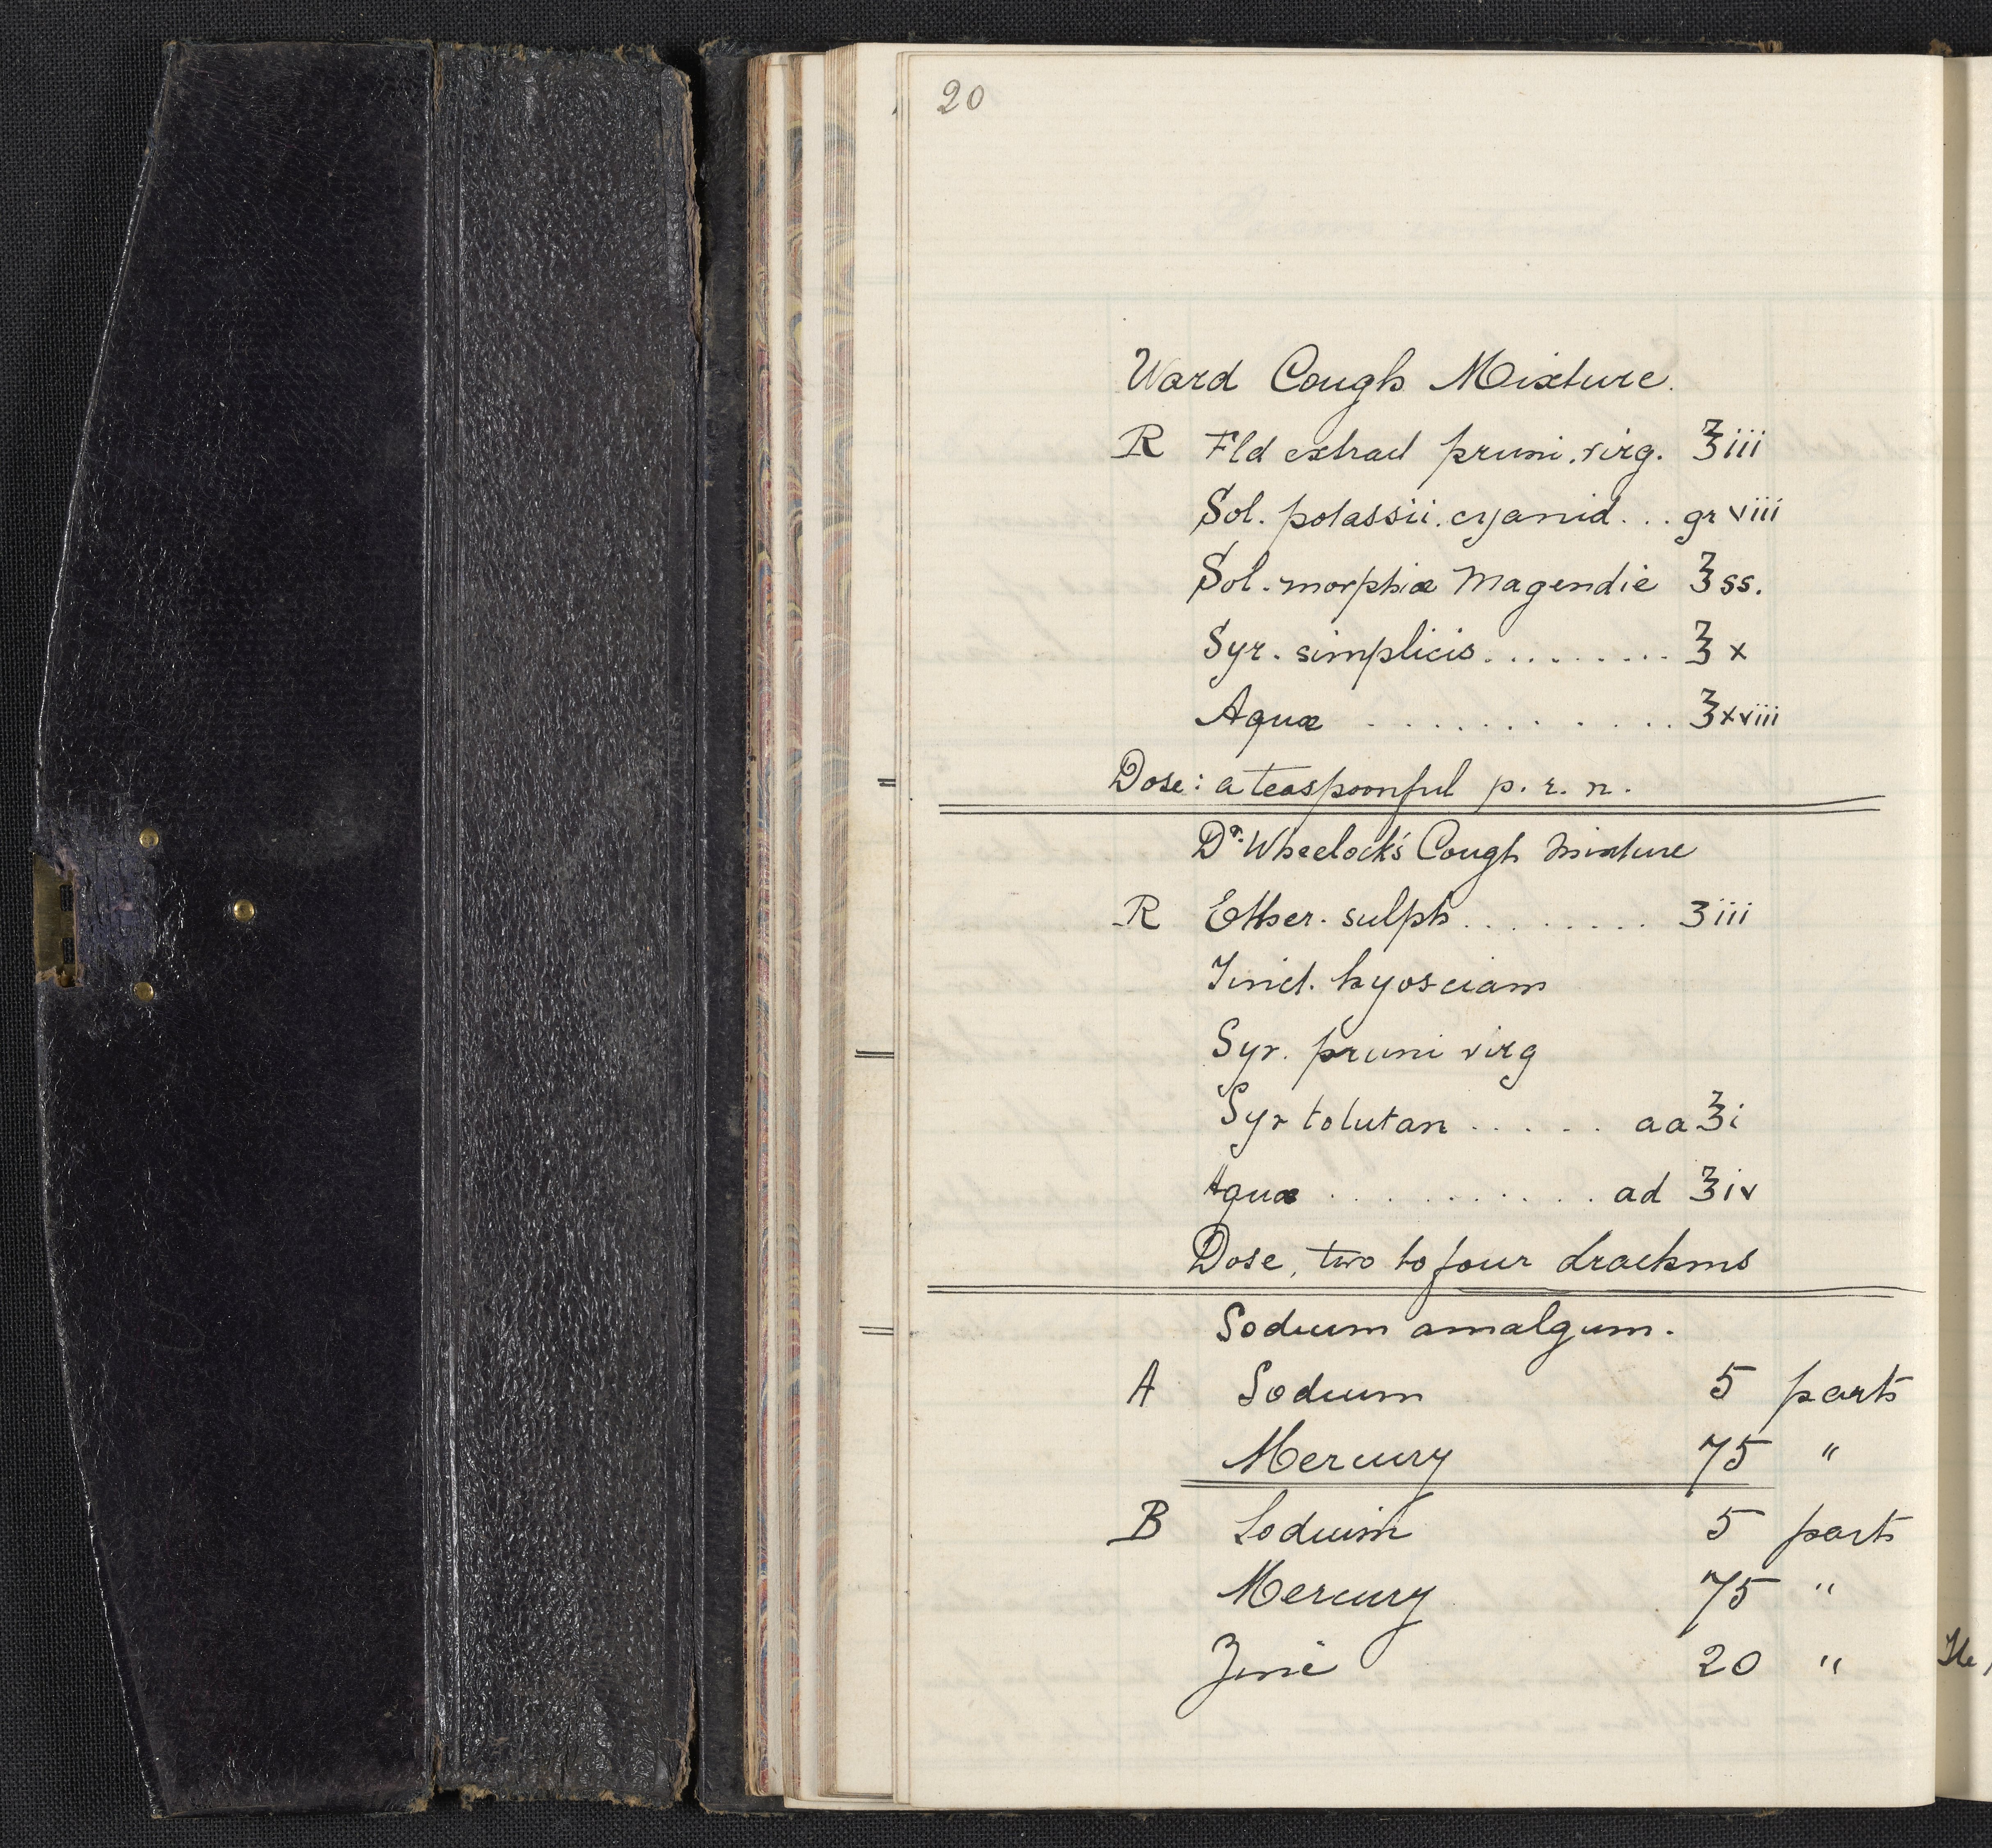 20
Ward Cough Mixture.
R Fld extract pruni. virg. ℥iii
Sol. potassii. cyanid... gr viii
Sol. morphiæ Magendie ℥ss.
Syr. simplicis......... ℥x
Aquæ ............ ℥xviii
Dose: a teaspoonful p. r. n.
Dr. Wheelock's Cough Mixture
R Ether. sulph......... ʒiii
Tinct. hyosciam
Syr. pruni virg
Syr tolutan ..... aa ℥i
Aquæ .......... ad ℥iv
Dose, two to four drachms
Sodium amalgum.
A Sodium 5 parts
Mercury 75 "
B Sodium 5 parts
Mercury 75 "
Zinc 20 "